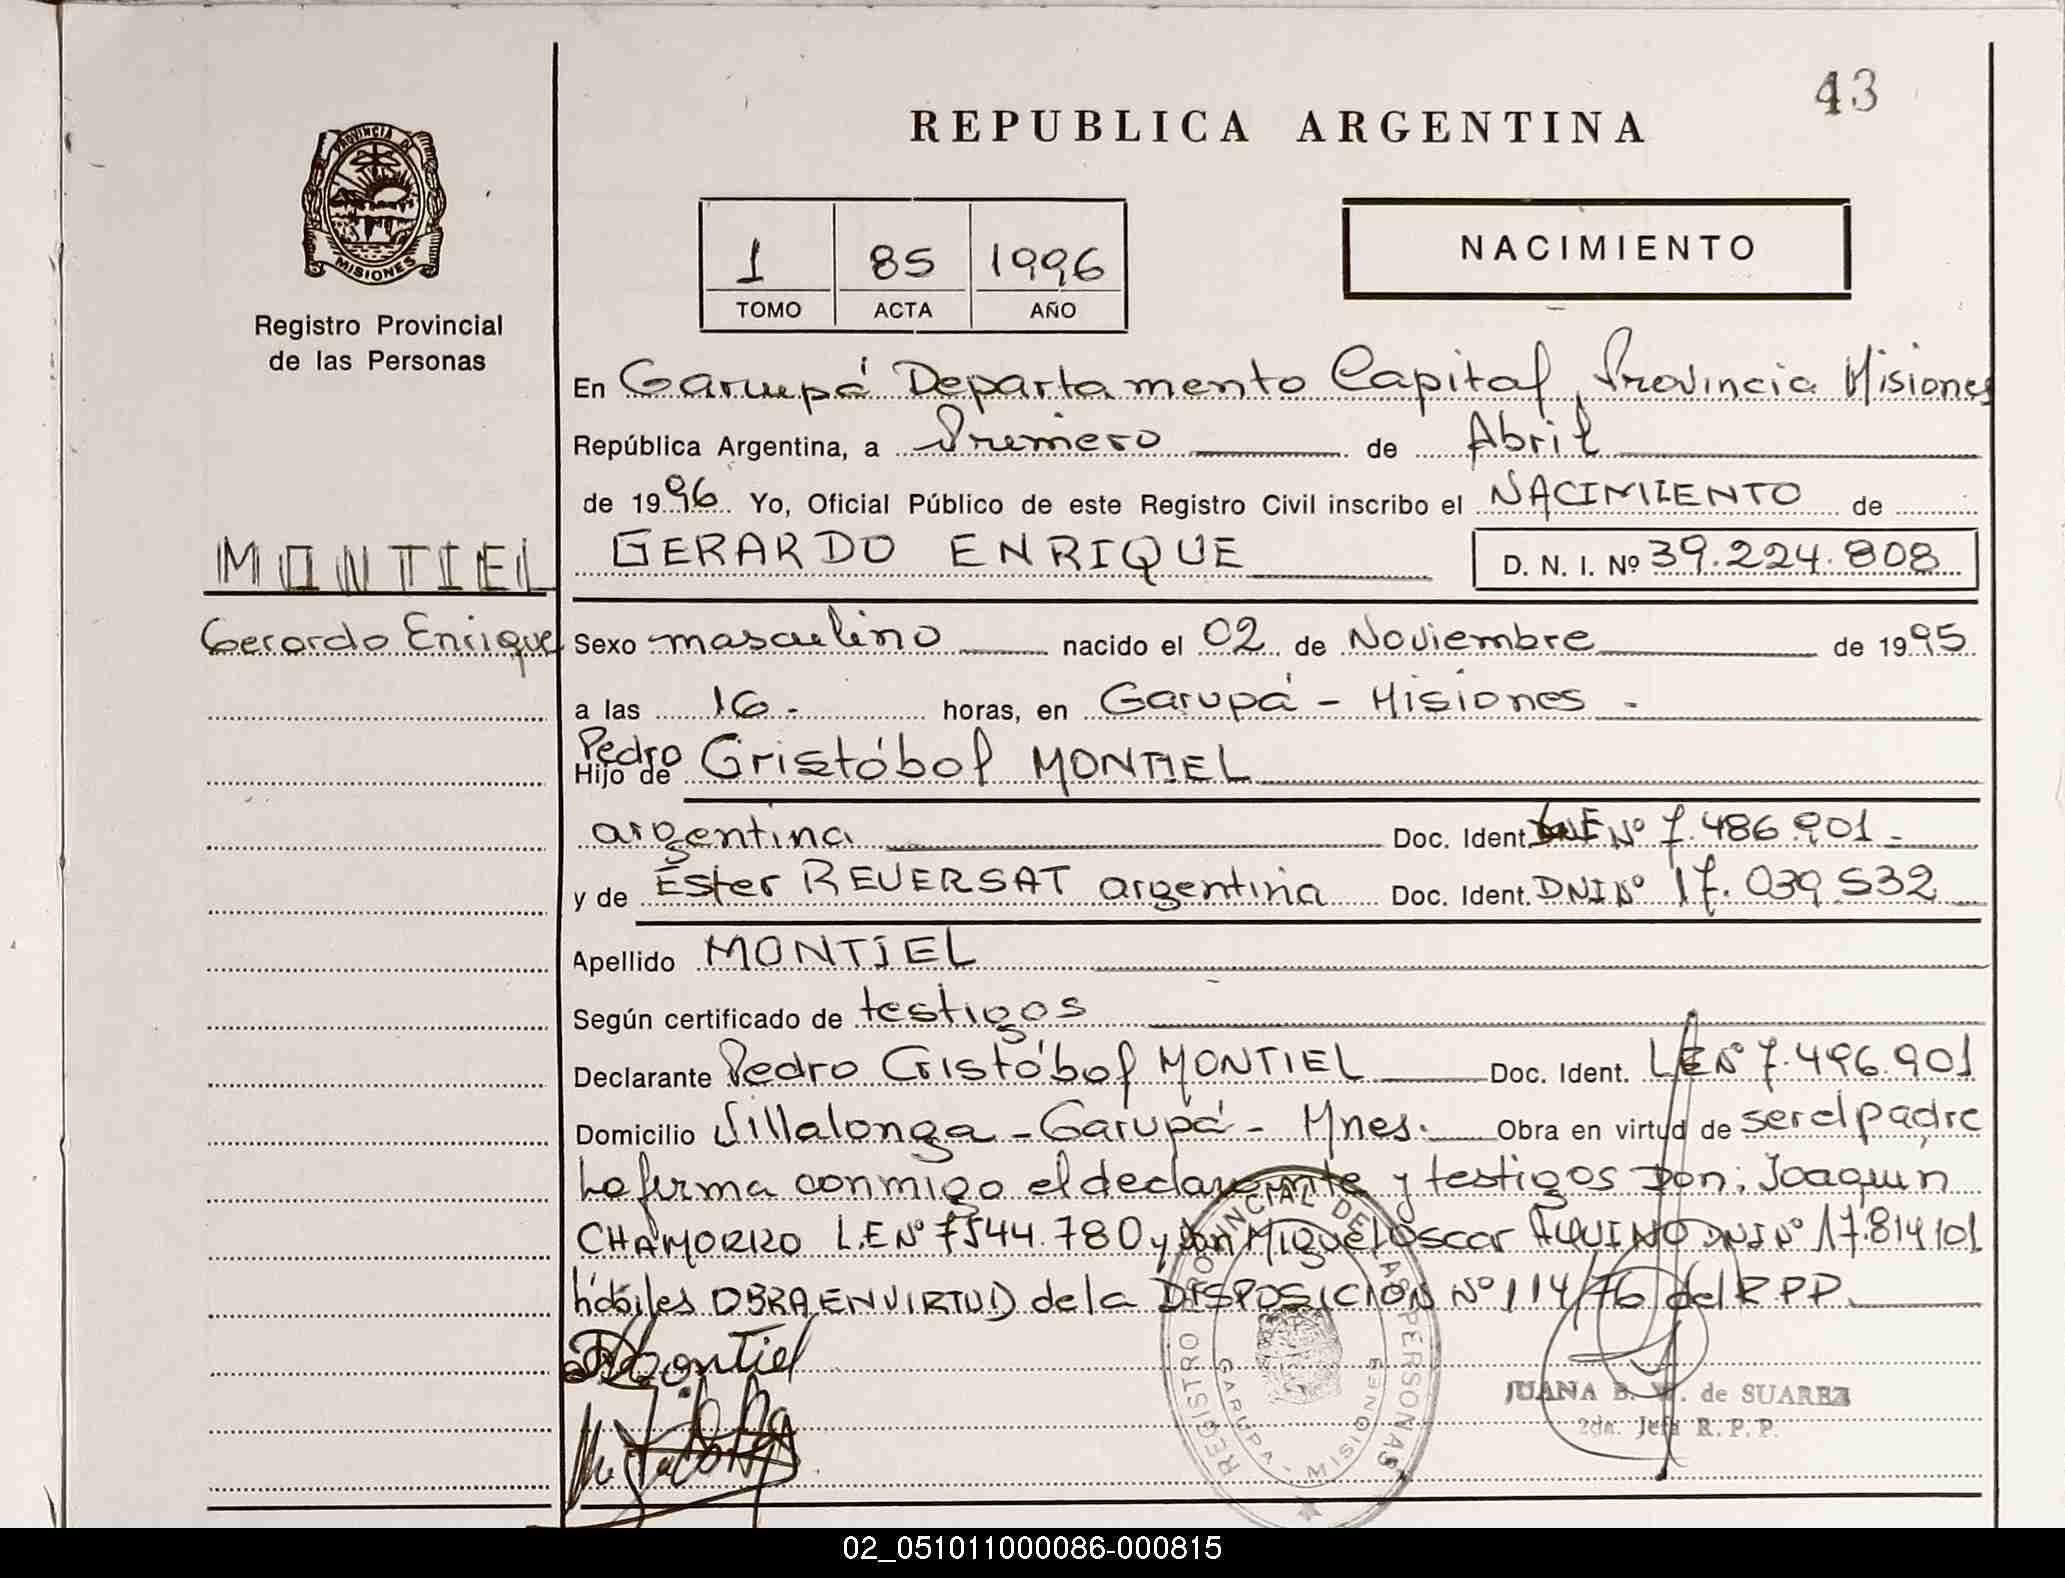 43
REPUBLICA ARGENTINA
PROVINCIA DE
MISIONES
Registro Provincial
de las Personas
1 85 1996
TOMO ACTA AÑO
NACIMIENTO
En Garupá Departamento Capital, Provincia Misiones
República Argentina, a Primero de Abril
de 1996 Yo, Oficial Público de este Registro Civil inscribo el NACIMIENTO de
MONTIEL
GERARDO ENRIQUE D. N. I. Nº 39.224.808
Gerardo Enrique
Sexo masculino nacido el 02 de Noviembre de 1995
a las 16 - horas, en Garupá - Misiones -
Hijo de Pedro Cristóbal MONTIEL
argentina Doc. Ident. LE Nº 7.486.901 -
y de Ester REVERSAT argentina Doc. Ident. DNI Nº 17.039.532
Apellido MONTIEL
Según certificado de testigos
Declarante Pedro Cristóbal MONTIEL Doc. Ident. LE Nº 7.496.901
Domicilio Villalonga - Garupá - Mnes. Obra en virtud de ser el padre
La firma conmigo el declarante y testigos Don; Joaquin
CHAMORRO L.E Nº 7544.780 y Don Miguel Oscar AQUINO DNI Nº 17.814101
hábiles OBRA EN VIRTUD de la DISPOSICION Nº 114/76 del R P P.
Montiel
REGISTRO PROVINCIAL DE LAS PERSONAS
GARUPA - MISIONES
JUANA B. W. de SUAREZ
2da. Jefa R. P. P.
02_051011000086-000815